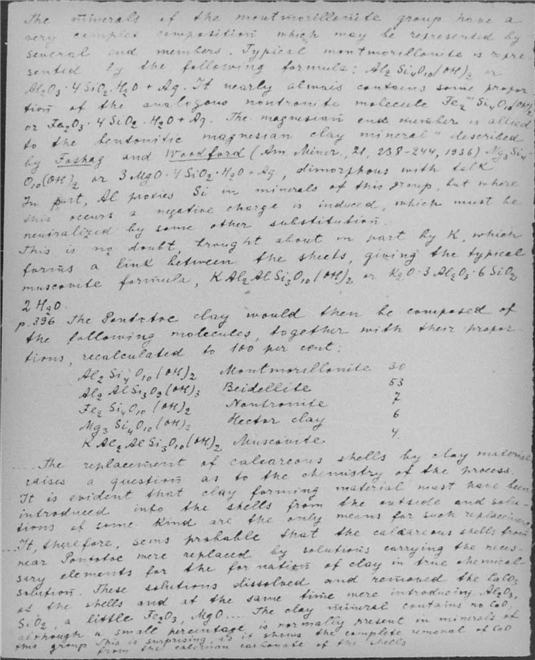 The minerals of the montmorillonite group have a
very complex composition which may be represented by
several end members. Typical montmorillonite is repre-
sented by the following formula: Al2Si4O10(OH)2 or
Al2O3·4SiO2·H2O + Aq. It nearly always contains some propor
tion of the analogous nontronite molecule Fe2'''Si4O10(OH)2
or Fe2O3·4SiO2·H2O + Aq. The magnesian end member is allied
to the bentonitic magnesian clay mineral described
by Foshag and Woodford (Am Miner., 21, 238-244, 1936) Mg3Si4
O10(OH)2 or 3MgO·4SiO2·H2O + Aq, dimorphous with talk
In part, Al proxies Si in minerals of this group, but where
this occurs a negative charge is induced, which must be
neutralized by some other substitution.
This is no doubt, brought about in part by K, which
forms a link between the sheets, giving the typical
muscovite formula, KAl2AlSi3O10(OH)2 or K2O·3Al2O3·6SiO2
2H2O.
p.396 The Pontotoc clay would then be composed of
the following molecules, together with their propor-
tions, recalculated to 100 per cent:
Al2Si4O10(OH)2 Montmorillonite 30
Al2AlSi3O9(OH)3 Beidellite 53
Fe2Si4O10(OH)2 Nontronite 7
Mg3Si4O10(OH)2 Hector clay 6
KAl2AlSi3O10(OH)2 Muscovite 4
....The replacement of calcareous shells by clay material
raises a question as to the chemistry of the process.
It is evident that clay forming material must have been
introduced into the shells from the outside and solu-
tions of some kind are the only means for such replacement
...It, therefore, seems probable that the calcareous shells from
near Pontotoc were replaced by solutions carrying the neces-
sary elements for the formation of clay in true chemical
solution. These solutions dissolved and removed the CaCO3
of the shells and at the same time were introducing Al2O3,
SiO2, a little Fe2O3, MgO... The clay mineral contains no CaO
although a small percentage is normally present in minerals of
this group. This is surprising as it shows the complete removal of CaO
from the calcium carbonate of the shells